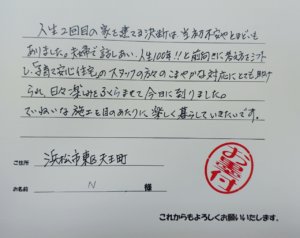 人生2回目の家を建てる決断は、当初不安やとまどいも
ありました。夫婦で話しあい、人生100年!!と前向きに考え方をシフト
し、子育て安心住宅のスタッフの方々のこまやかな対応にとても助け
られ、日々楽しみをふくらませて今日に到りました。
ていねいな施工を目のあたりに、楽しく暮らしていきたいです。
ご住所
浜松市東区天王町
お名前
N 様
お墨付
これからもよろしくお願いいたします。